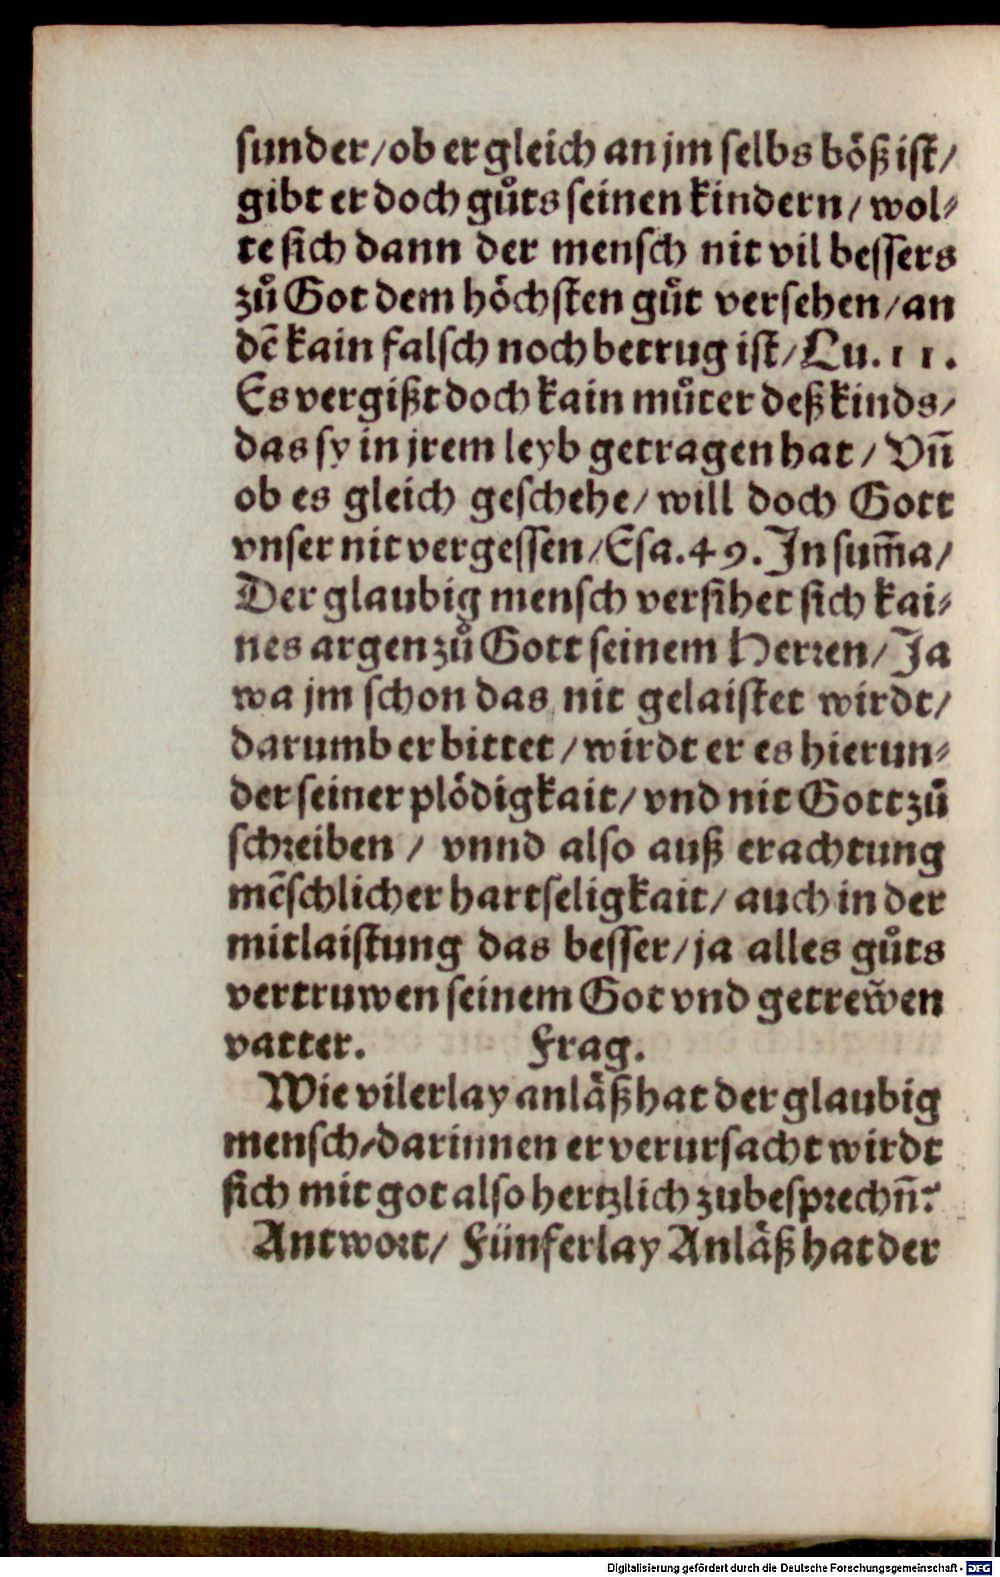 sunder/ob er gleich an jm selbs böß ist/
gibt er doch gůts seinen kindern/wol⸗
te sich dann der mensch nit vil bessers
zů Got dem höchsten gůt versehen/an
dẽ kain falsch noch betrug ist/Lu.11.
Es vergißt doch kain můter deß kinds/
das sy in jrem leyb getragen hat/Vñ
ob es gleich geschehe/will doch Gott
vnser nit vergessen/Esa.49.In sum̃a/
Der glaubig mensch versihet sich kai⸗
nes argen zů Gott seinem Herren/Ja
wa jm schon das nit gelaistet wirdt/
darumb er bittet/wirdt er es hierun⸗
der seiner plödigkait/vnd nit Gott zů
schreiben/vnnd also auß erachtung
mẽschlicher hartseligkait/auch in der
mitlaistung das besser/ja alles gůts
vertruwen seinem Got vnd getrew̃en
vatter. Frag.
Wie vilerlay anläß hat der glaubig
mensch/darinnen er verursacht wirdt
sich mit got also hertzlich zubesprechñ?
Antwort/Fünferlay Anläß hat der
Digitalisierung gefördert durch die Deutsche Forschungsgemeinschaft - DFG